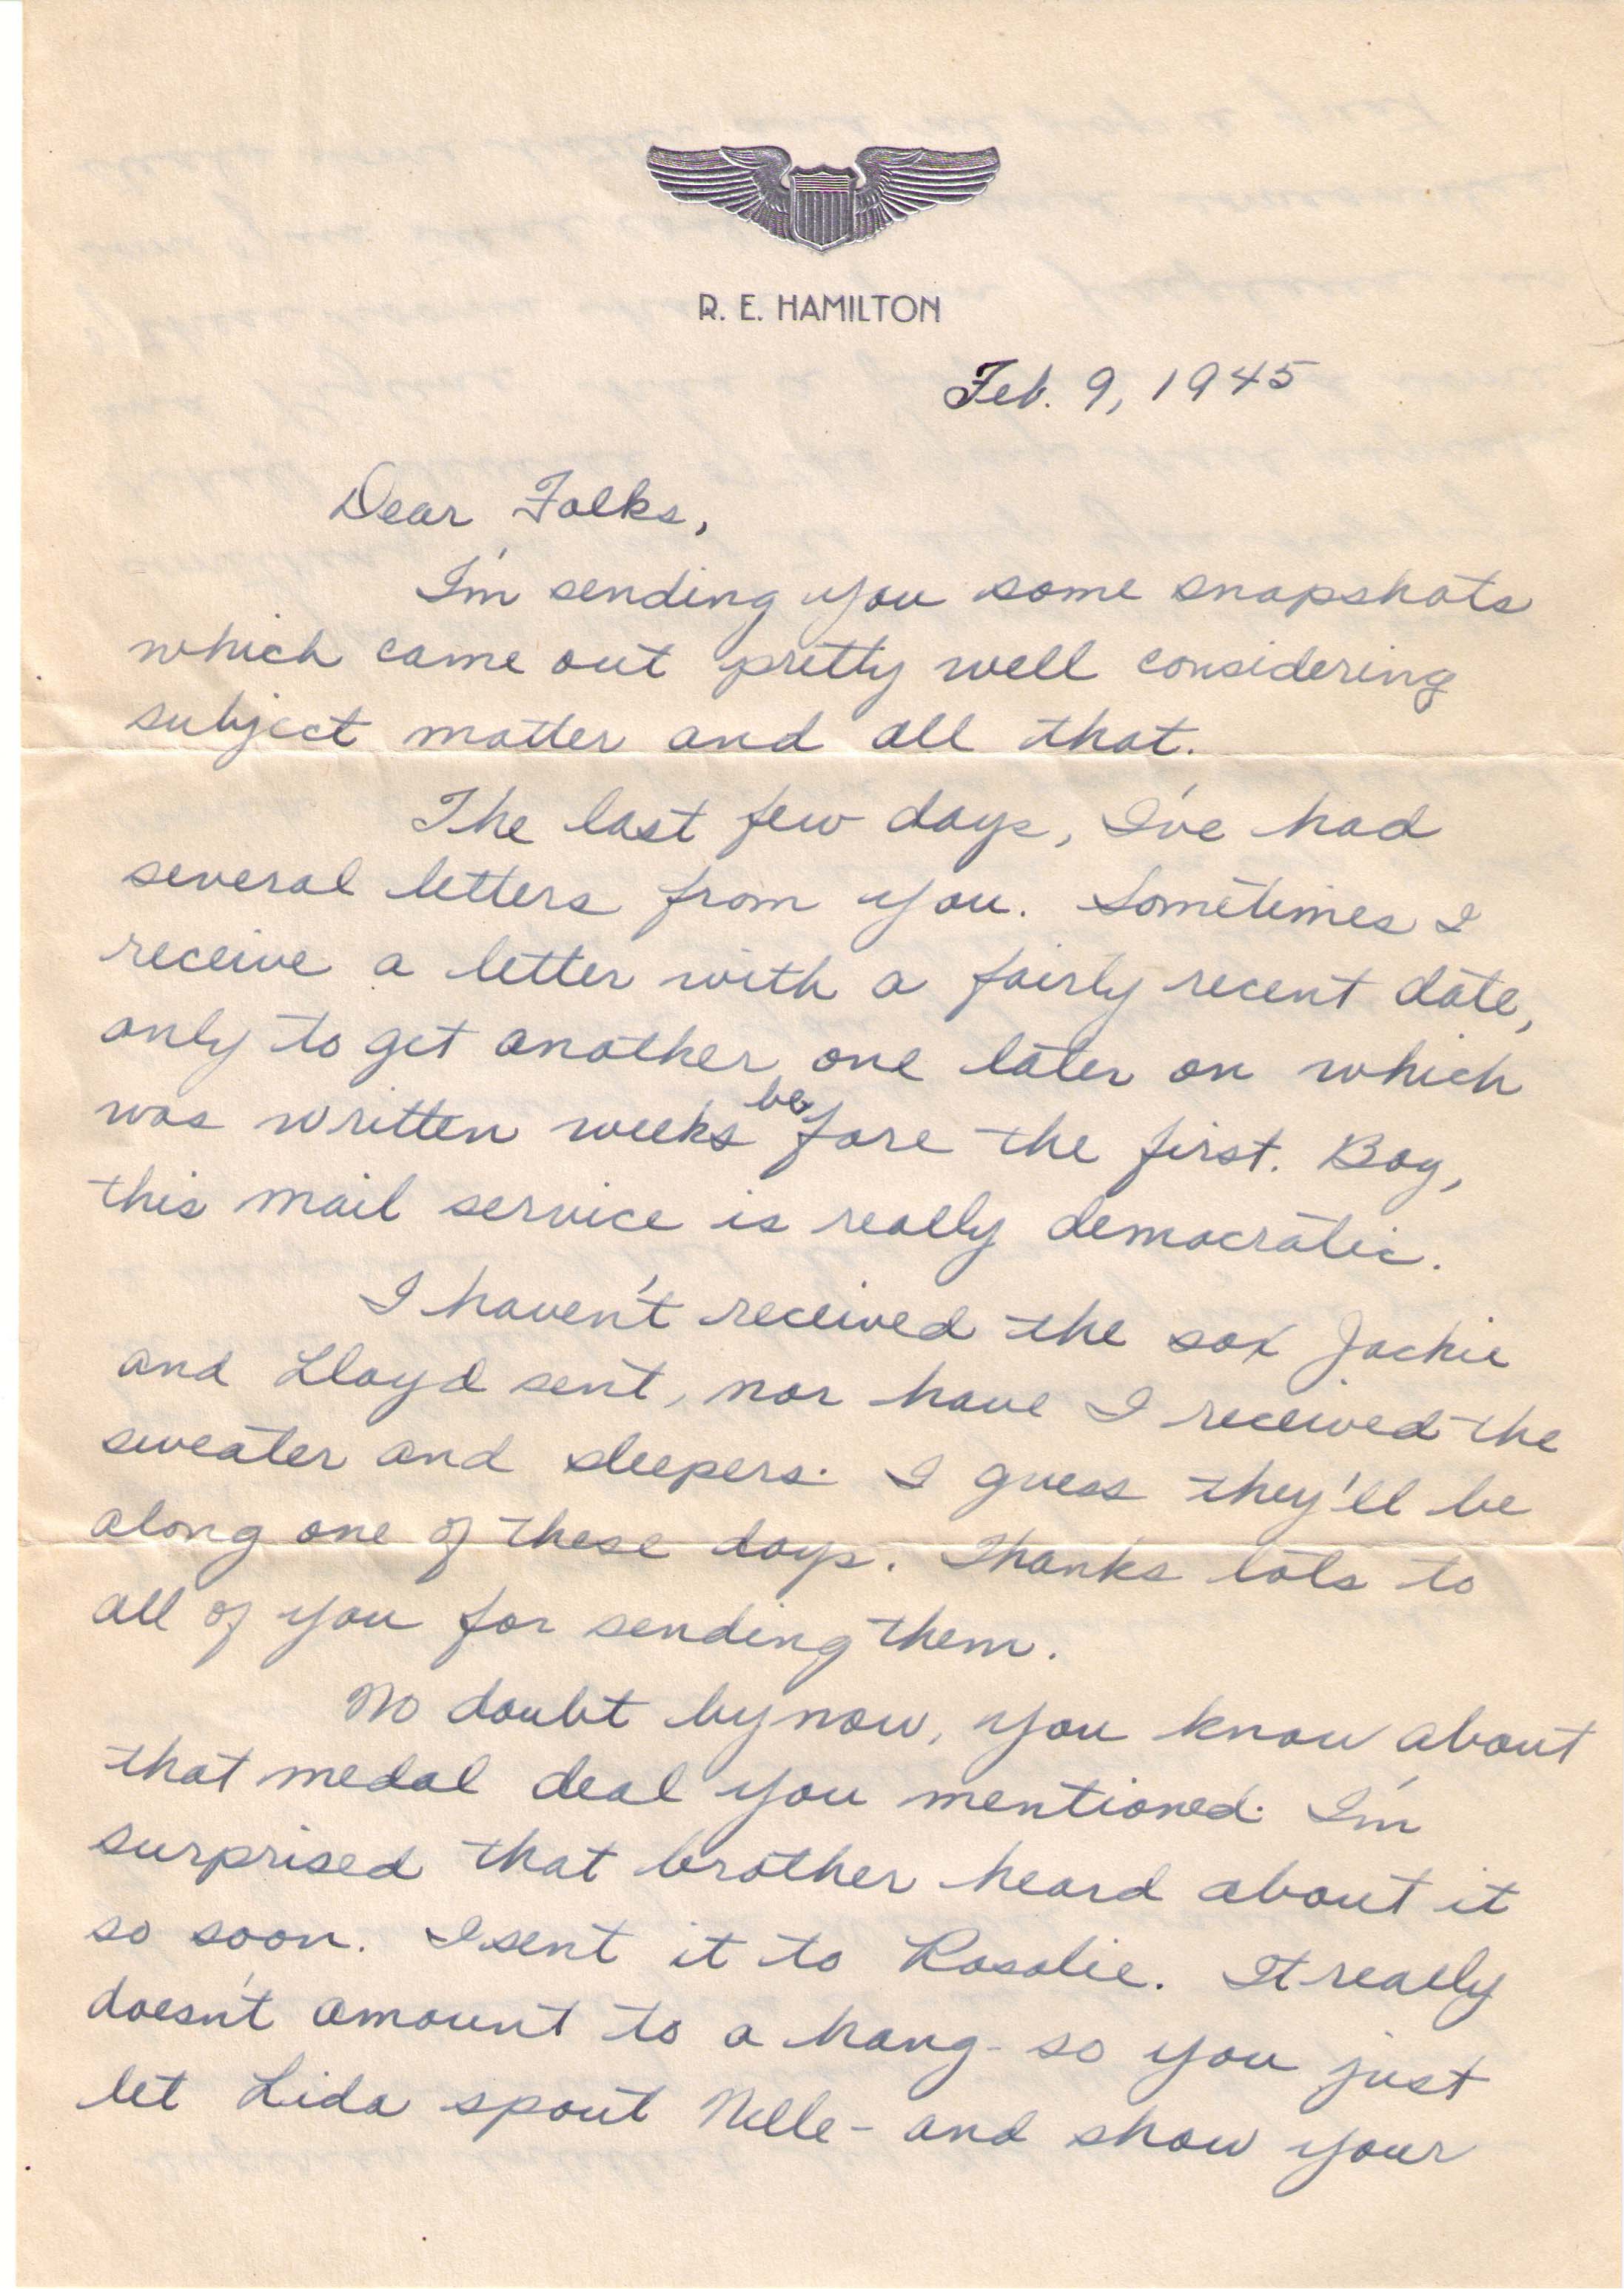 R. E. HAMILTON
Feb. 9, 1945
Dear Folks,
I'm sending you some snapshots
which came out pretty well considering
subject matter and all that.
The last few days, I've had
several letters from you. Sometimes I
receive a letter with a fairly recent date,
only to get another one later on which
was written weeks before the first. Boy,
this mail service is really democratic.
I haven't received the sox Jackie
and Lloyd sent, nor have I received the
sweater and sleepers. I guess they'll be
along one of these days. Thanks lots to
all of you for sending them.
No doubt by now, you know about
that medal deal you mentioned. I'm
surprised that brother heard about it
so soon. I sent it to Rosalie. It really
doesn't amount to a hang - so you just
let Lida spout Nelle - and show your